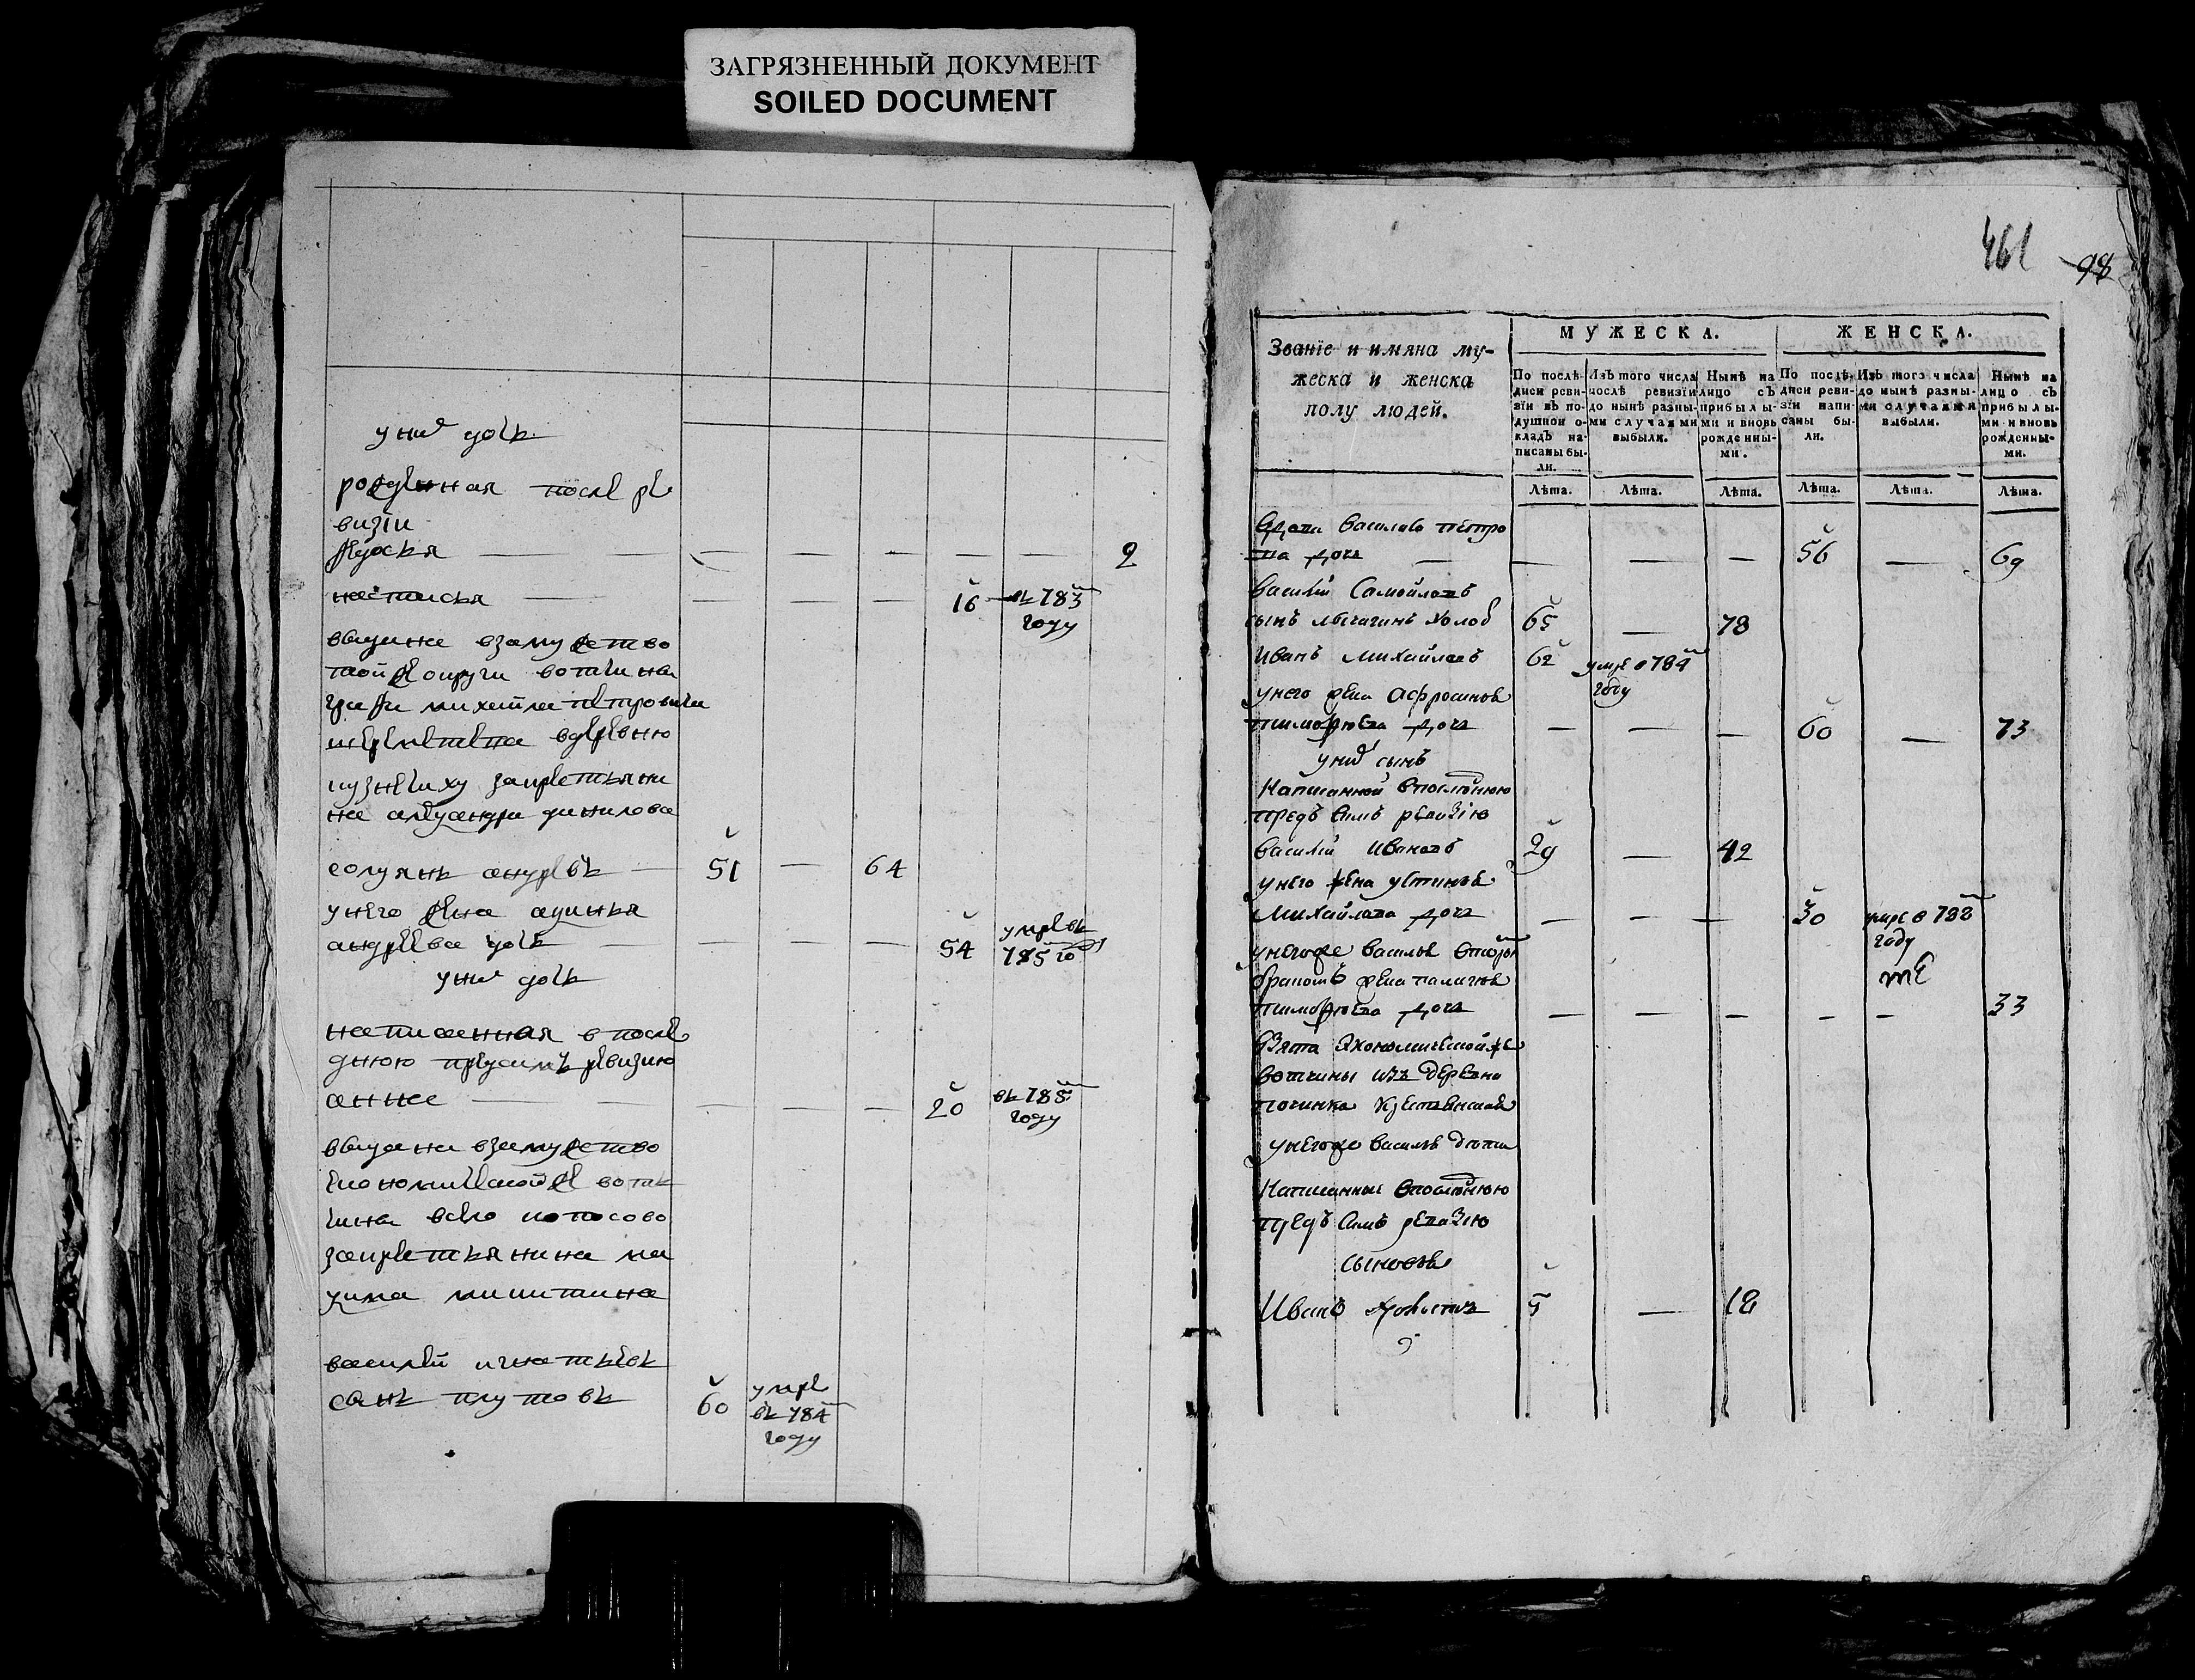 ЗАГРЯЗНЕННЫЙ ДОКУМЕНТ
SOILED DOCUMENT
у них дочь
рожденная после ре
визiи
федосья — — — — — — 2
настасья — — — — 16 въ 783
году
выдана взамужство
той ж округи вотчины
графа михайла петровича
шереметева вдеревню
за крестьяни
на александра данилова
андреевъ — 51 — 64
унего жена авдотья
андреева дочь — — — — 54 умре въ
785 го
у них дочь
написанная в после
днюю предсимъ ревизию
анна — — — — 20 въ 785
году
выдана взамужство
экономической ж вот
чины село
за крестьянина ма
ксима никитина
василей игнатьевъ
сынъ 60 умре
въ 784
году
461 98
Званїе и имяна му-
жеска и женска
полу людей.
МУЖЕСКА. ЖЕНСКА.
По послѣ-
дней реви-
зїи въ по-
душной о-
кладъ на-
писаны бы-
ли.
Изъ того числа
послѣ ревизїи
до нынѣ разны-
ми случаями
выбыли.
Нынѣ на
лицо съ
прибылы-
ми и вновь
рожденны-
ми.
По послѣ-
дней реви-
зїи напи-
саны бы-
ли.
Изъ того числа
до нынѣ разны-
ми случаями
выбыли.
Нынѣ на
лицо съ
прибылы-
ми и вновь
рожденны-
ми.
Лѣта. Лѣта. Лѣта. Лѣта. Лѣта. Лѣта.
вдова Василиса петро
ва дочь — — — — 56 — 69
Василiй Самойловъ
сынъ холос 65 — 78
Иванъ михайловъ 62 умре в 784
году
унего жена Афросинья
тимофеева дочь — — — 60 — 73
у них сынъ
Написанной впоследнюю
предъ симъ ревизiю
Василiй Ивановъ 29 — 42
унего жена устинья
Михайлова дочь — — — 30 умре в 788
году
унегоже Василья вторым
браком жена пелагея
тимофеева дочь — — — — — 33
взята экономической же
вотчины изъ деревни
починка
унегоже Василья дети
Написанные впоследнюю
предъ симъ ревизiю
сыновья
Иванъ холостъ 5 — 18